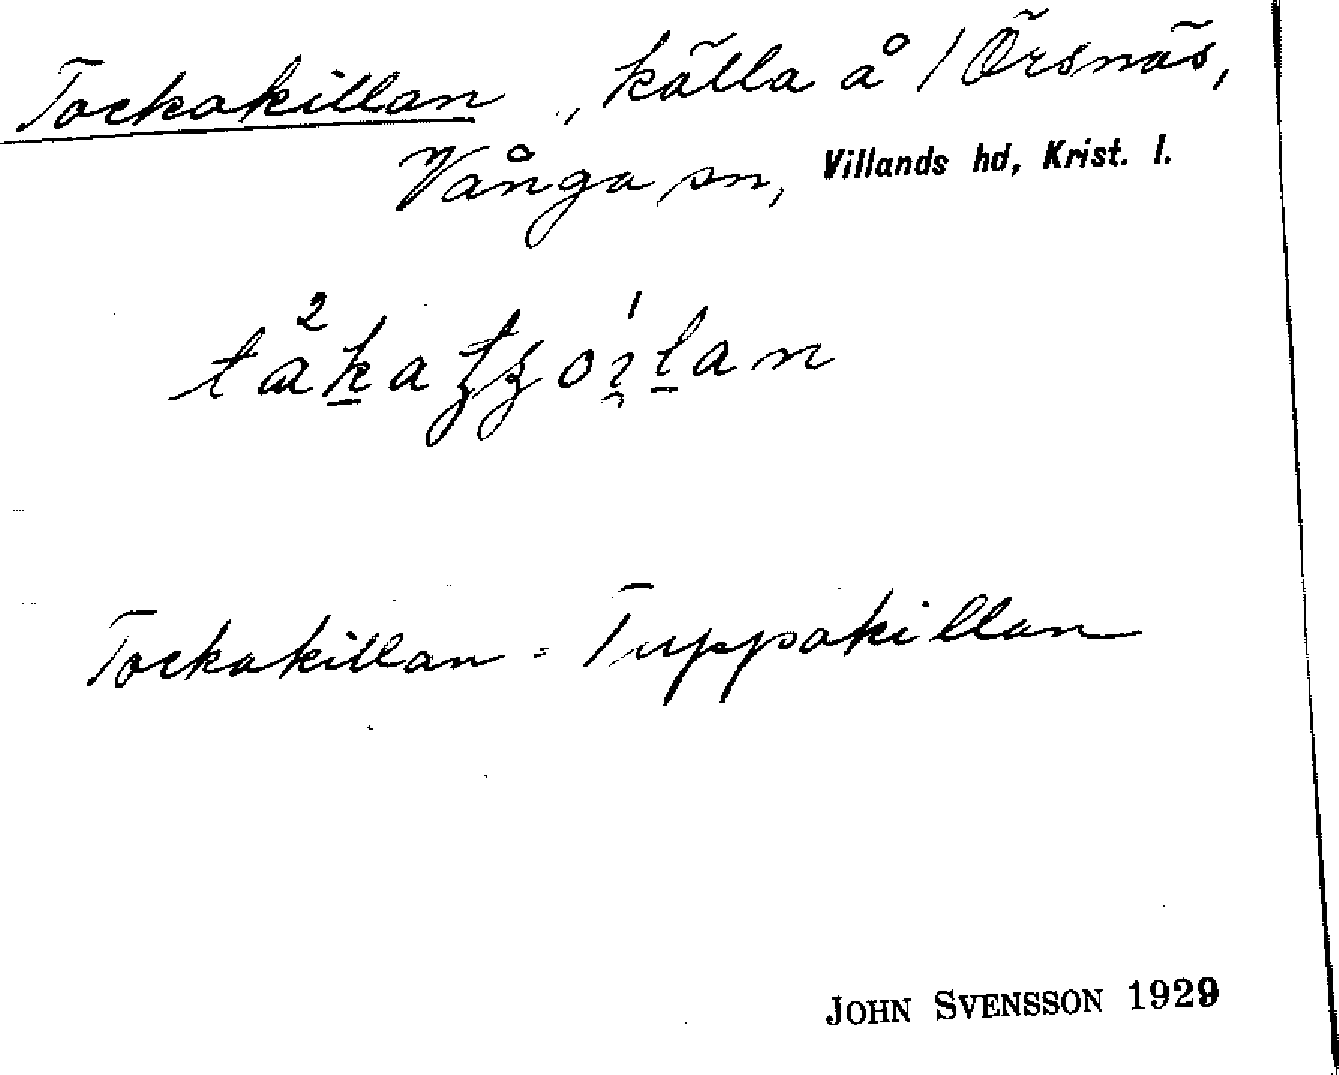 Tockakillan, källa å 1 Örsnäs,
Vånga sn, Villands hd, Krist. l.
Tockakillan = Tuppakillan
JOHN SVENSSON 1929